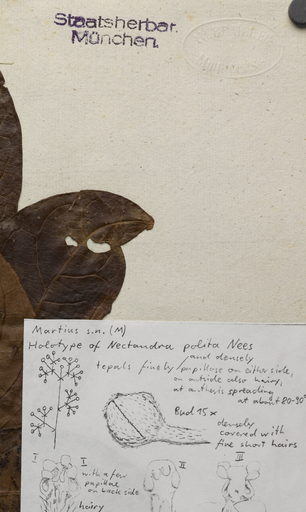 Staatsherbar.
München.
Martius s.n. (M)
Holotype of Nectandra polita Nees
and densely
tepals finely papillose on either side,
on outside also hairy,
at anthesis spreading
at about 80-90°
Bud 15x
densely
covered with
fine short hairs
I
II
III
with a few
papillae
on back side
hairy